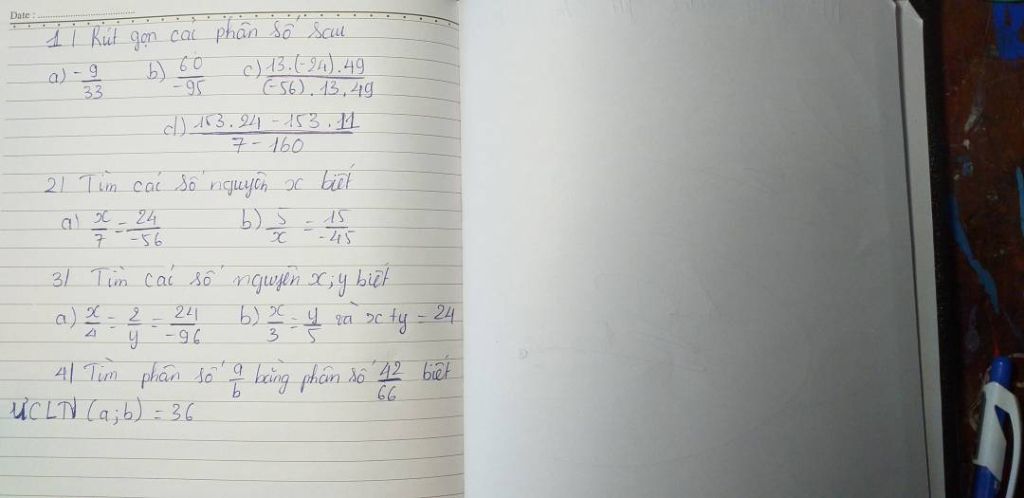 Date :
1| Rút gọn các phân số sau
a) -9/33 b) 60/-95 c) 13.(-24).49/(-56).13.49
d) 153.24 - 153.11/7-160
2| Tìm các số nguyên x biết
a) x/7 = 24/-56 b) 5/x = 15/-45
3| Tìm các số nguyên x;y biết
a) x/4 = 2/y = 24/-96 b) x/3 = y/5 và x+y = 24
4| Tìm phân số a/b bằng phân số 42/66 biết
ƯCLN (a;b) = 36